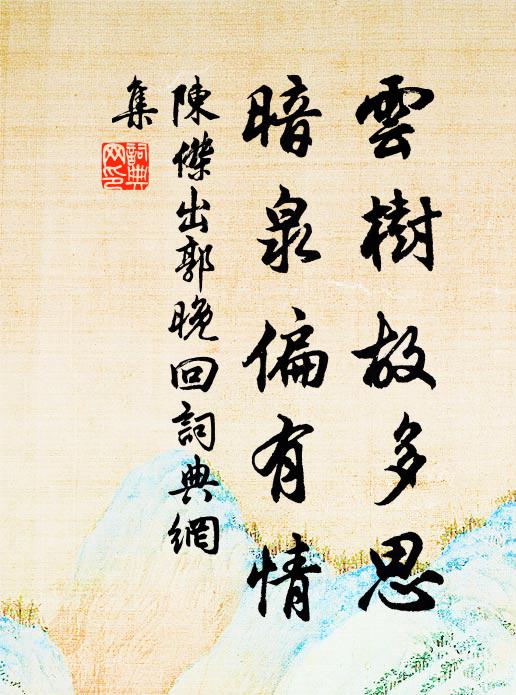 雲樹故多思
暗泉偏有情
陳傑出郭晚回詞典網
集
詞典
网印